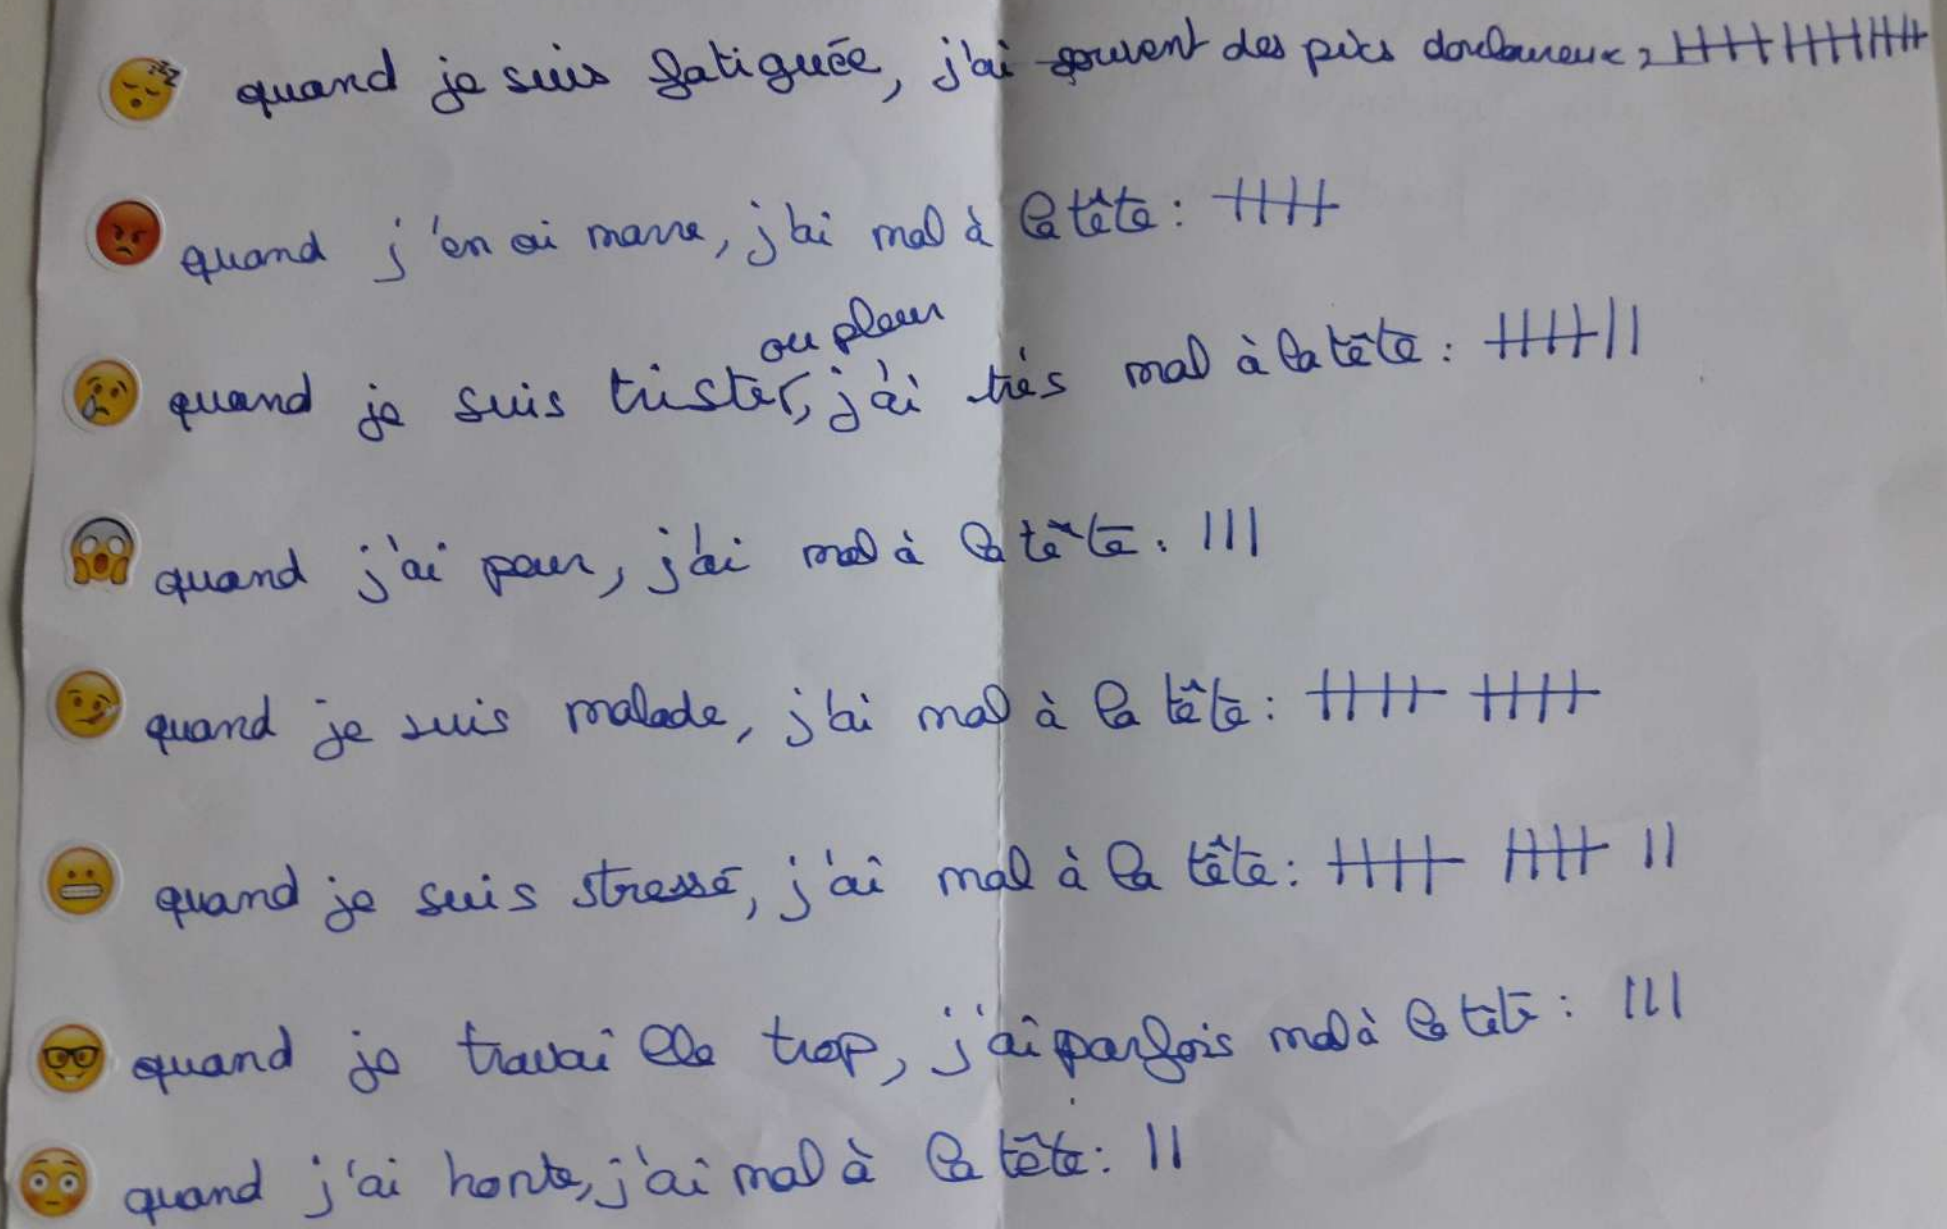 quand je suis fatiguée, j'ai souvent des pics douloureux : 卌 卌 卌
quand j'en ai marre, j'ai mal à la tête : 卌
ou pleur
quand je suis trister, j'ai très mal à la tête : 卌 ||
quand j'ai peur, j'ai mal à la tête : |||
quand je suis malade, j'ai mal à la tête : 卌 卌
quand je suis stressé, j'ai mal à la tête : 卌 卌 ||
quand je travaille trop, j'ai parfois mal à la tête : |||
quand j'ai honte, j'ai mal à la tête : ||